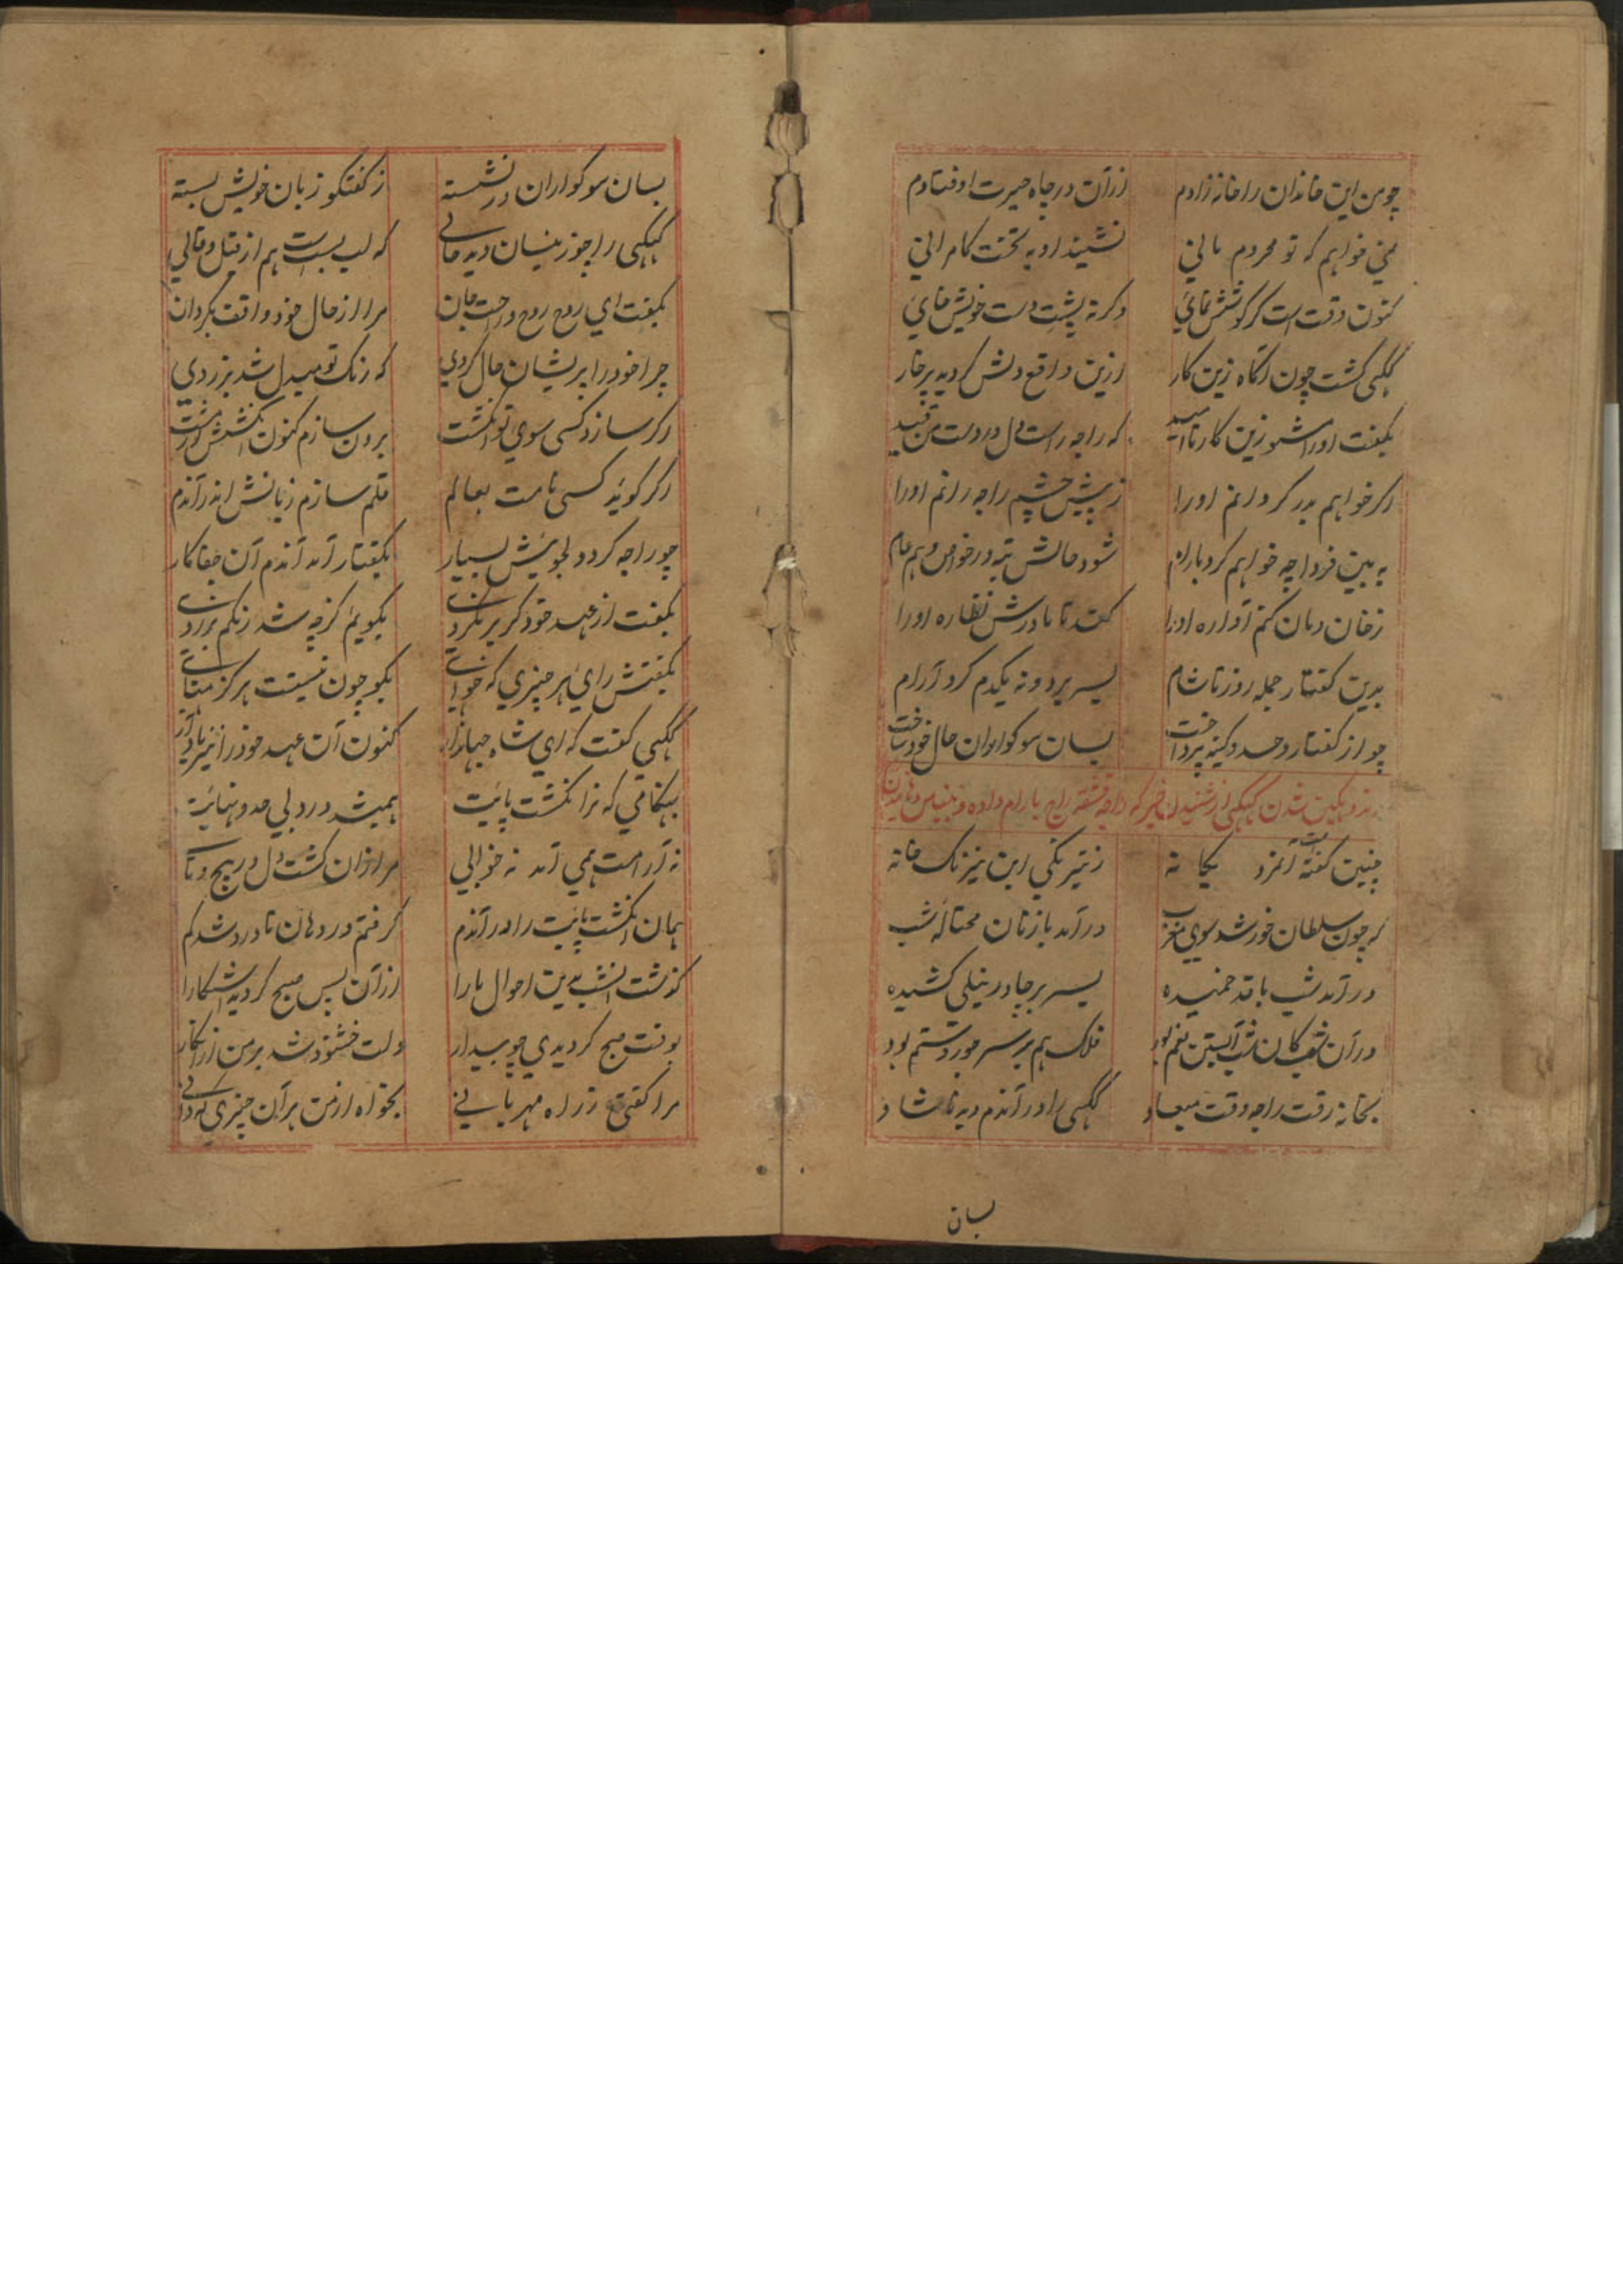 چو من این خاندان را خانه زادم ازان در چاه حیرت اوفتادم
نمی خواهم که تو محروم مانی نشیند او به تخت کامرانی
کنون وقت است گر کوشش نمائی وگرنه پشت دست خویش خائی
گکهی گشت چون آگاه زین کار ازین واقع دلش گردید پر خار
بگفت او را مشو زین کار ناامید که راجه راست دل در دست من قید
اگر خواهم بدر گردانم او را ز پیش چشم راجه رانم او را
به بین فردا چه خواهم کرد با رام شود حالش تبه در خواص و هم عام
ز خان و مان کنم آواره او را کند تا مادرش نظاره او را
بدین گفتار جمله روز تا شام بسر برد و نه یکدم کرد آرام
چو از گفتار و حسد و کینه پرداخت بسان سوکواران حال خود ساخت
شدن گکهی از شنیدن خبر که راجه قشقه راج بارام داده و
چنین گفته است آنمرد یگانه ز نیرنگی این نیرنگ خانه
که چون سلطان خورشد سوی مغرب در آمد باز نان محتاله شب
در آمد شب با قد خمیده بسر بر چادر نیلی کشیده
در آن شب کان شب آبستن بغم بود فلک هم بر سر جور و ستم بود
بخانه رفت راجه وقت میعاد گکهی را در آندم دید ناشاد
بسان
بسان سوکواران در نشسته ز گفتگو زبان خویش بسته
گکهی را چو زینسان دید حالی که لب بست است هم از قیل و قالی
بگفت ای روح روح و راحت جان مرا از حال خود واقف بگردان
چرا خود را پریشان حال کردی که رنگ تو مبدل شد بزردی
اگر سازد کسی سوی تو انگشت برون سازم کنون انگشتش از مشت
اگر گوید کسی نامت بعالم قلم سازم زبانش اندر آندم
چو راجه کرد دلجوئیش بسیار بگفتار آمد آندم آن جفاکار
بگفت از عهد خود گر بر نگردی بگویم کز چه شد رنگم بزردی
بگفتش رای هر چیزی که خواهی بگو چون نیست هرگز
گکهی گفت که ای شاه جهاندار کنون آن عهد خود را نیز یاد آر
بهنگامی که نر انگشت پائیت همیشد درد بی حد و نهائیت
نه آرامت همی آمد نه خوابی مرا زان گشت دل در پیچ و تابی
همان انگشت پائیت را در آندم گرفتم در دهان تا درد شد کم
گذشت آنشب بدین احوال یارا از آن پس صبح گردید آشکارا
بوقت صبح گردیدی چو بیدار دلت خشنود شد بر من از انکار
مرا گفتی ز راه مهربانی بخواه از من هر آن چیزی که دانی